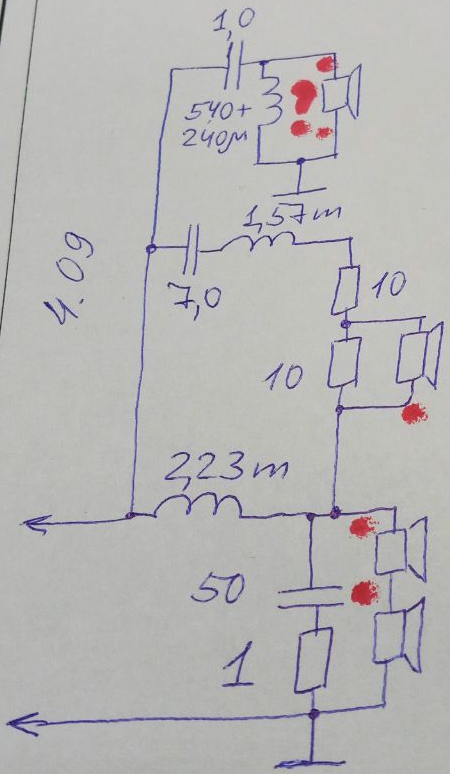 1,0
540+
240μ
1,57m
7,0
10
4.09
10
2,23m
50
1